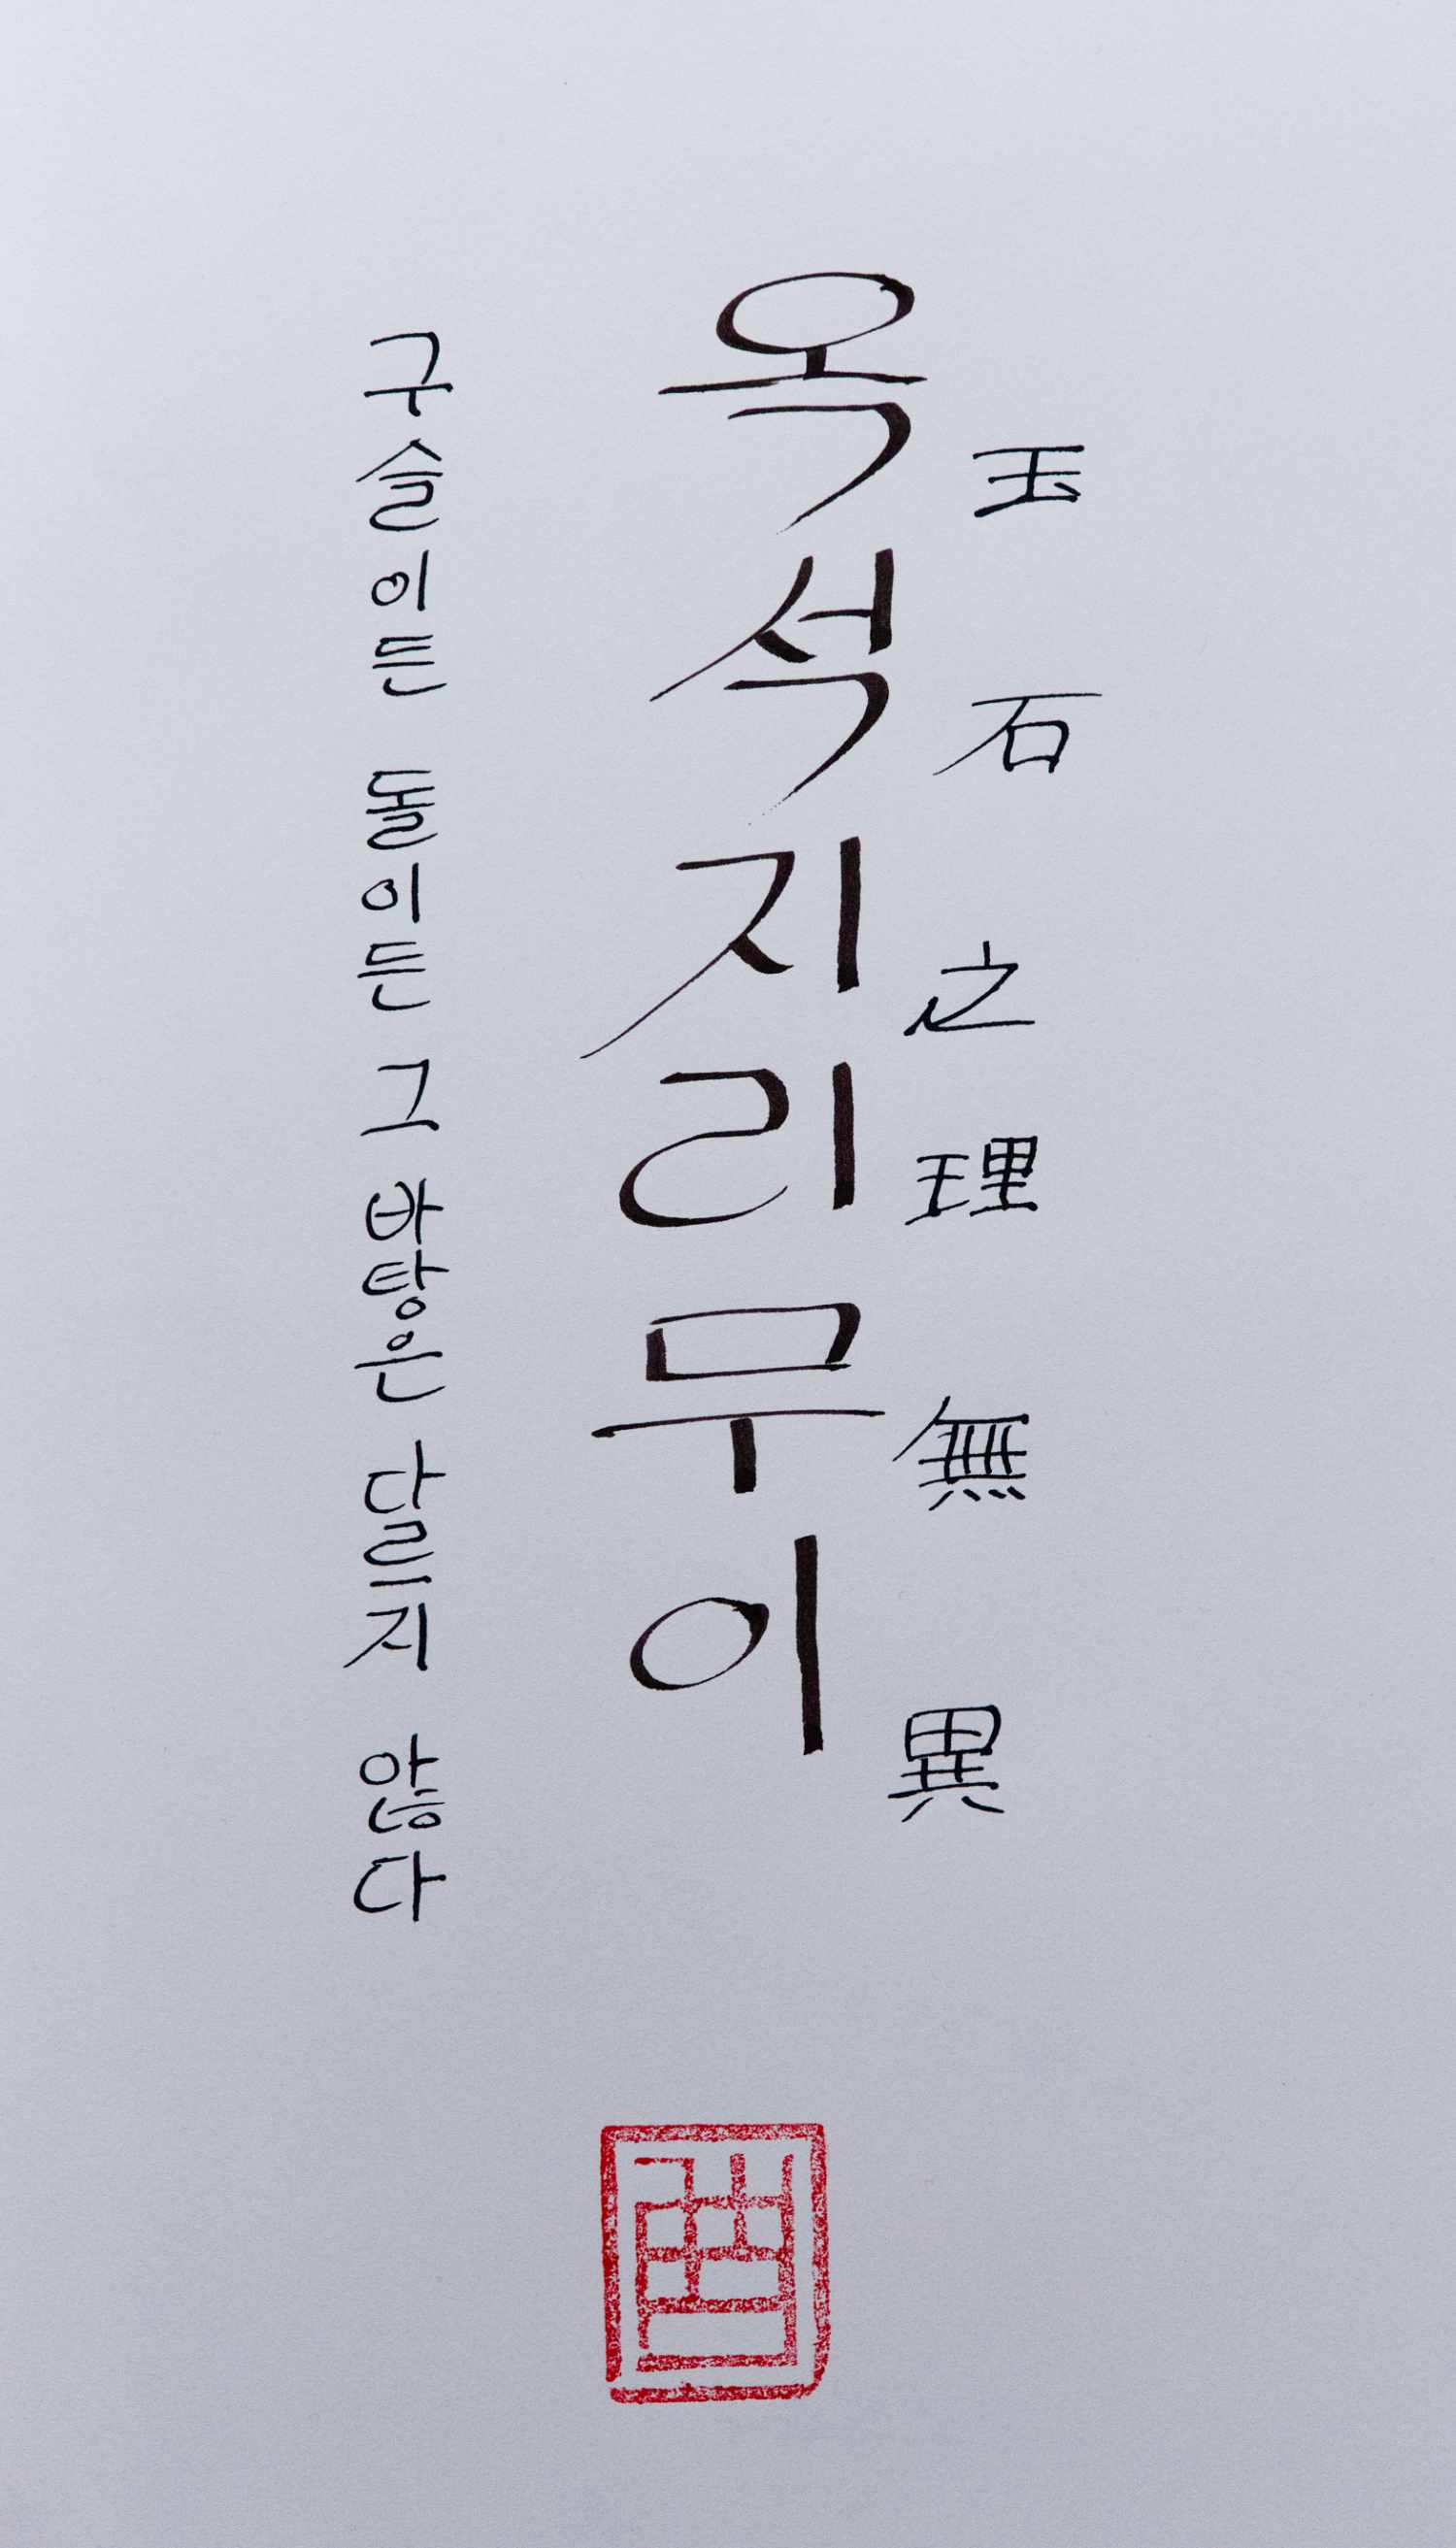 玉石之理無異
옥석지리무이
구슬이든 돌이든 그 바탕은 다르지 않다